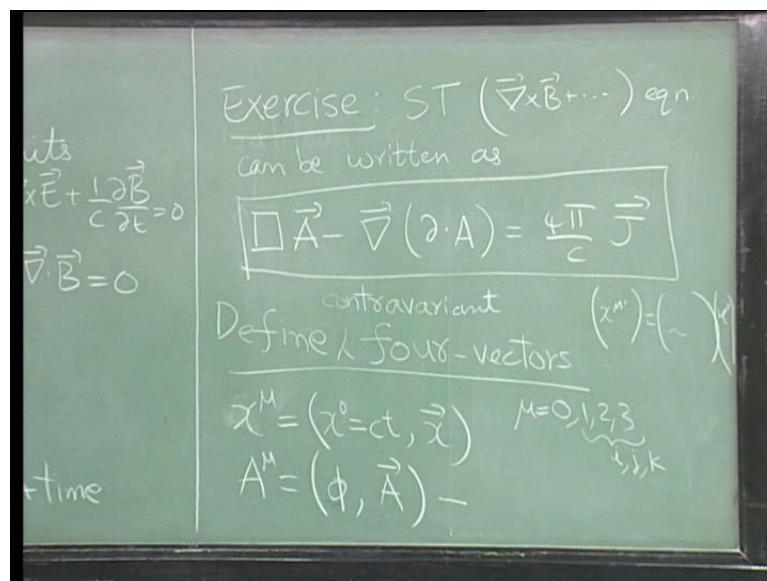 its
x\vec{E} + \frac{1}{c}\frac{∂\vec{B}}{∂t} = 0
\vec{∇}·\vec{B} = 0
+time
Exercise: ST (\vec{∇}×\vec{B}+···) eqn
can be written as
□\vec{A} − \vec{∇}(∂·A) = \frac{4π}{c} \vec{J}
contravariant
Define ⋏ four-vectors
x^μ = (x^0=ct, \vec{x})
μ=0,1,2,3
i,j,k
A^μ = (ϕ, \vec{A}) −